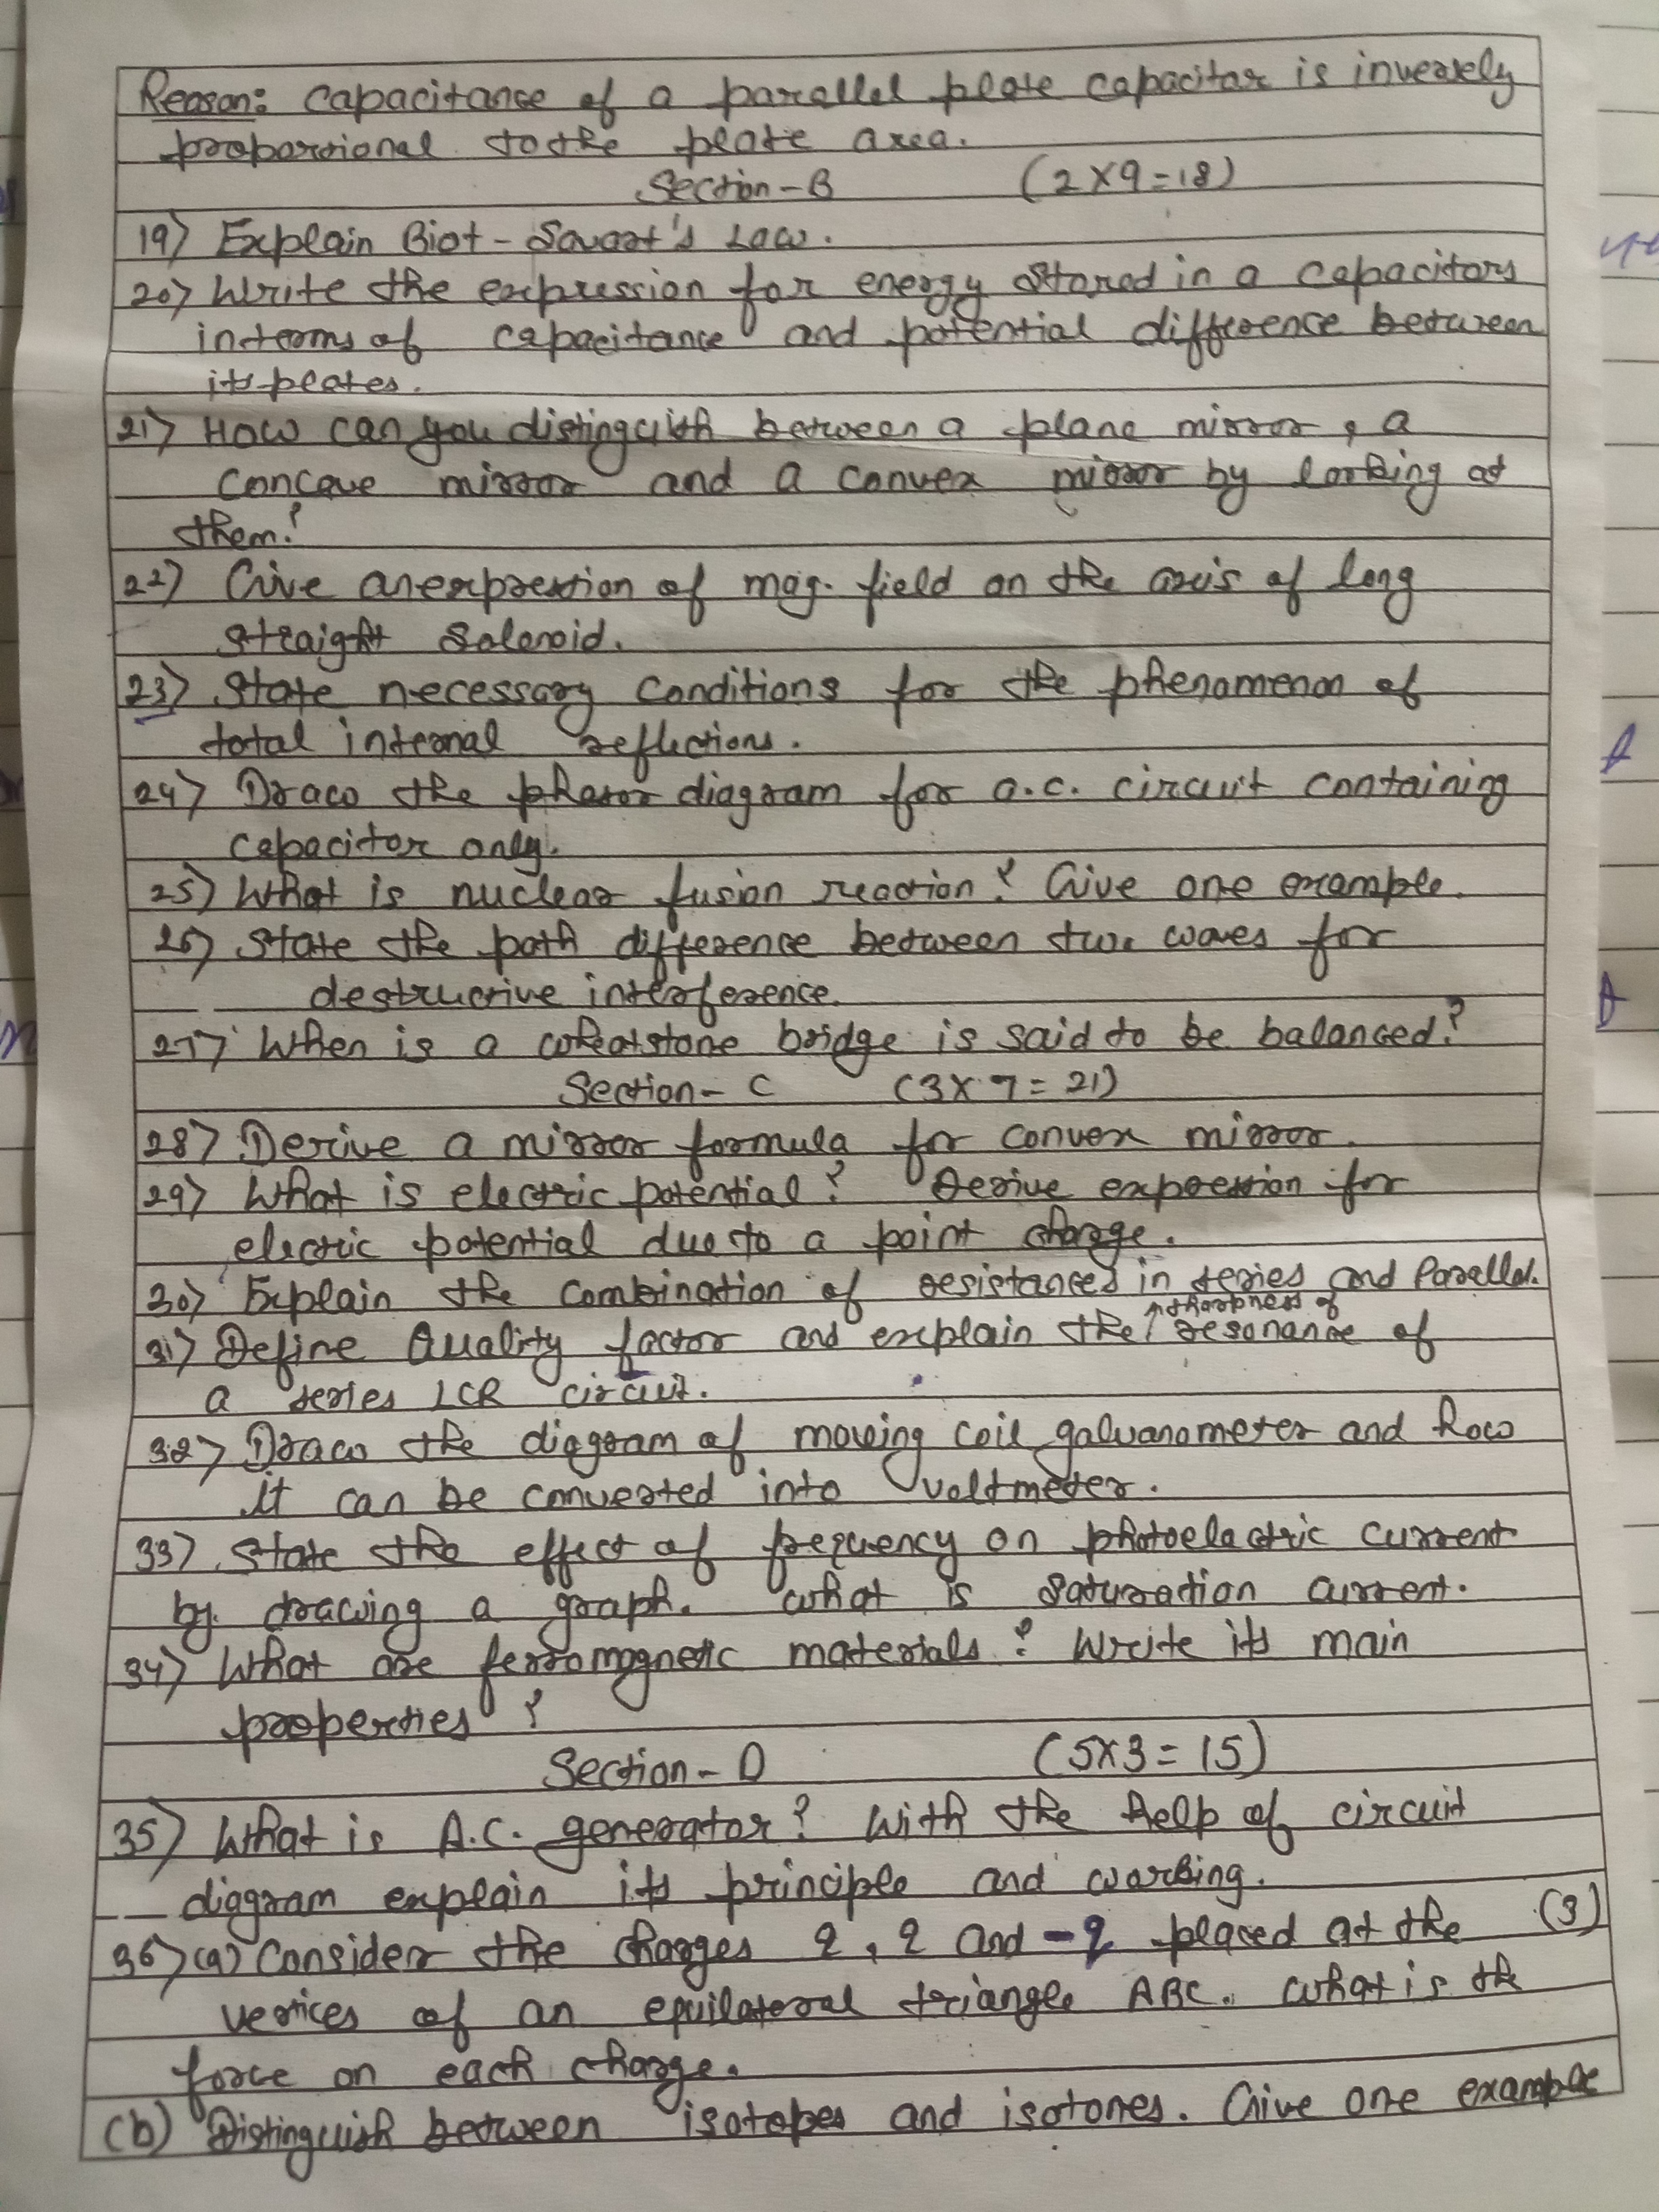 Reason: Capacitance of a parallel plate capacitor is inversely
proportional to the plate area.
Section-B (2×9=18)
19) Explain Biot-Savart's Law.
20) Write the expression for energy stored in a capacitors
in terms of capacitance and potential difference between
its plates.
21) How can you distinguish between a plane mirror, a
concave mirror and a convex mirror by looking at
them?
22) Give an expression of mag. field on the axis of long
straight Solenoid.
23) State necessary conditions for the phenomenon of
total internal reflections.
24) Draw the phasor diagram for a.c. circuit containing
capacitor only.
25) What is nuclear fusion reaction? Give one example.
26) State the path difference between two waves for
destructive interference.
27) When is a wheatstone bridge is said to be balanced?
Section-C (3×7=21)
28) Derive a mirror formula for convex mirror.
29) What is electric potential? Derive expression for
electric potential due to a point charge.
30) Explain the combination of resistances in series and Parallel.
sharpness of
31) Define Quality factor and explain the resonance of
a series LCR circuit.
32) Draw the diagram of moving coil galvanometer and how
it can be converted into voltmeter.
33) State the effect of frequency on photoelectric current
by drawing a graph. What is saturation current.
34) What are ferromagnetic materials? Write its main
properties?
Section-D (5×3=15)
35) What is A.C. generator? With the help of circuit
diagram explain its principle and working.
36) (a) Consider the charges q, q and -q placed at the (3)
vertices of an equilateral triangle ABC. What is the
force on each charge.
(b) Distinguish between isotopes and isotones. Give one example